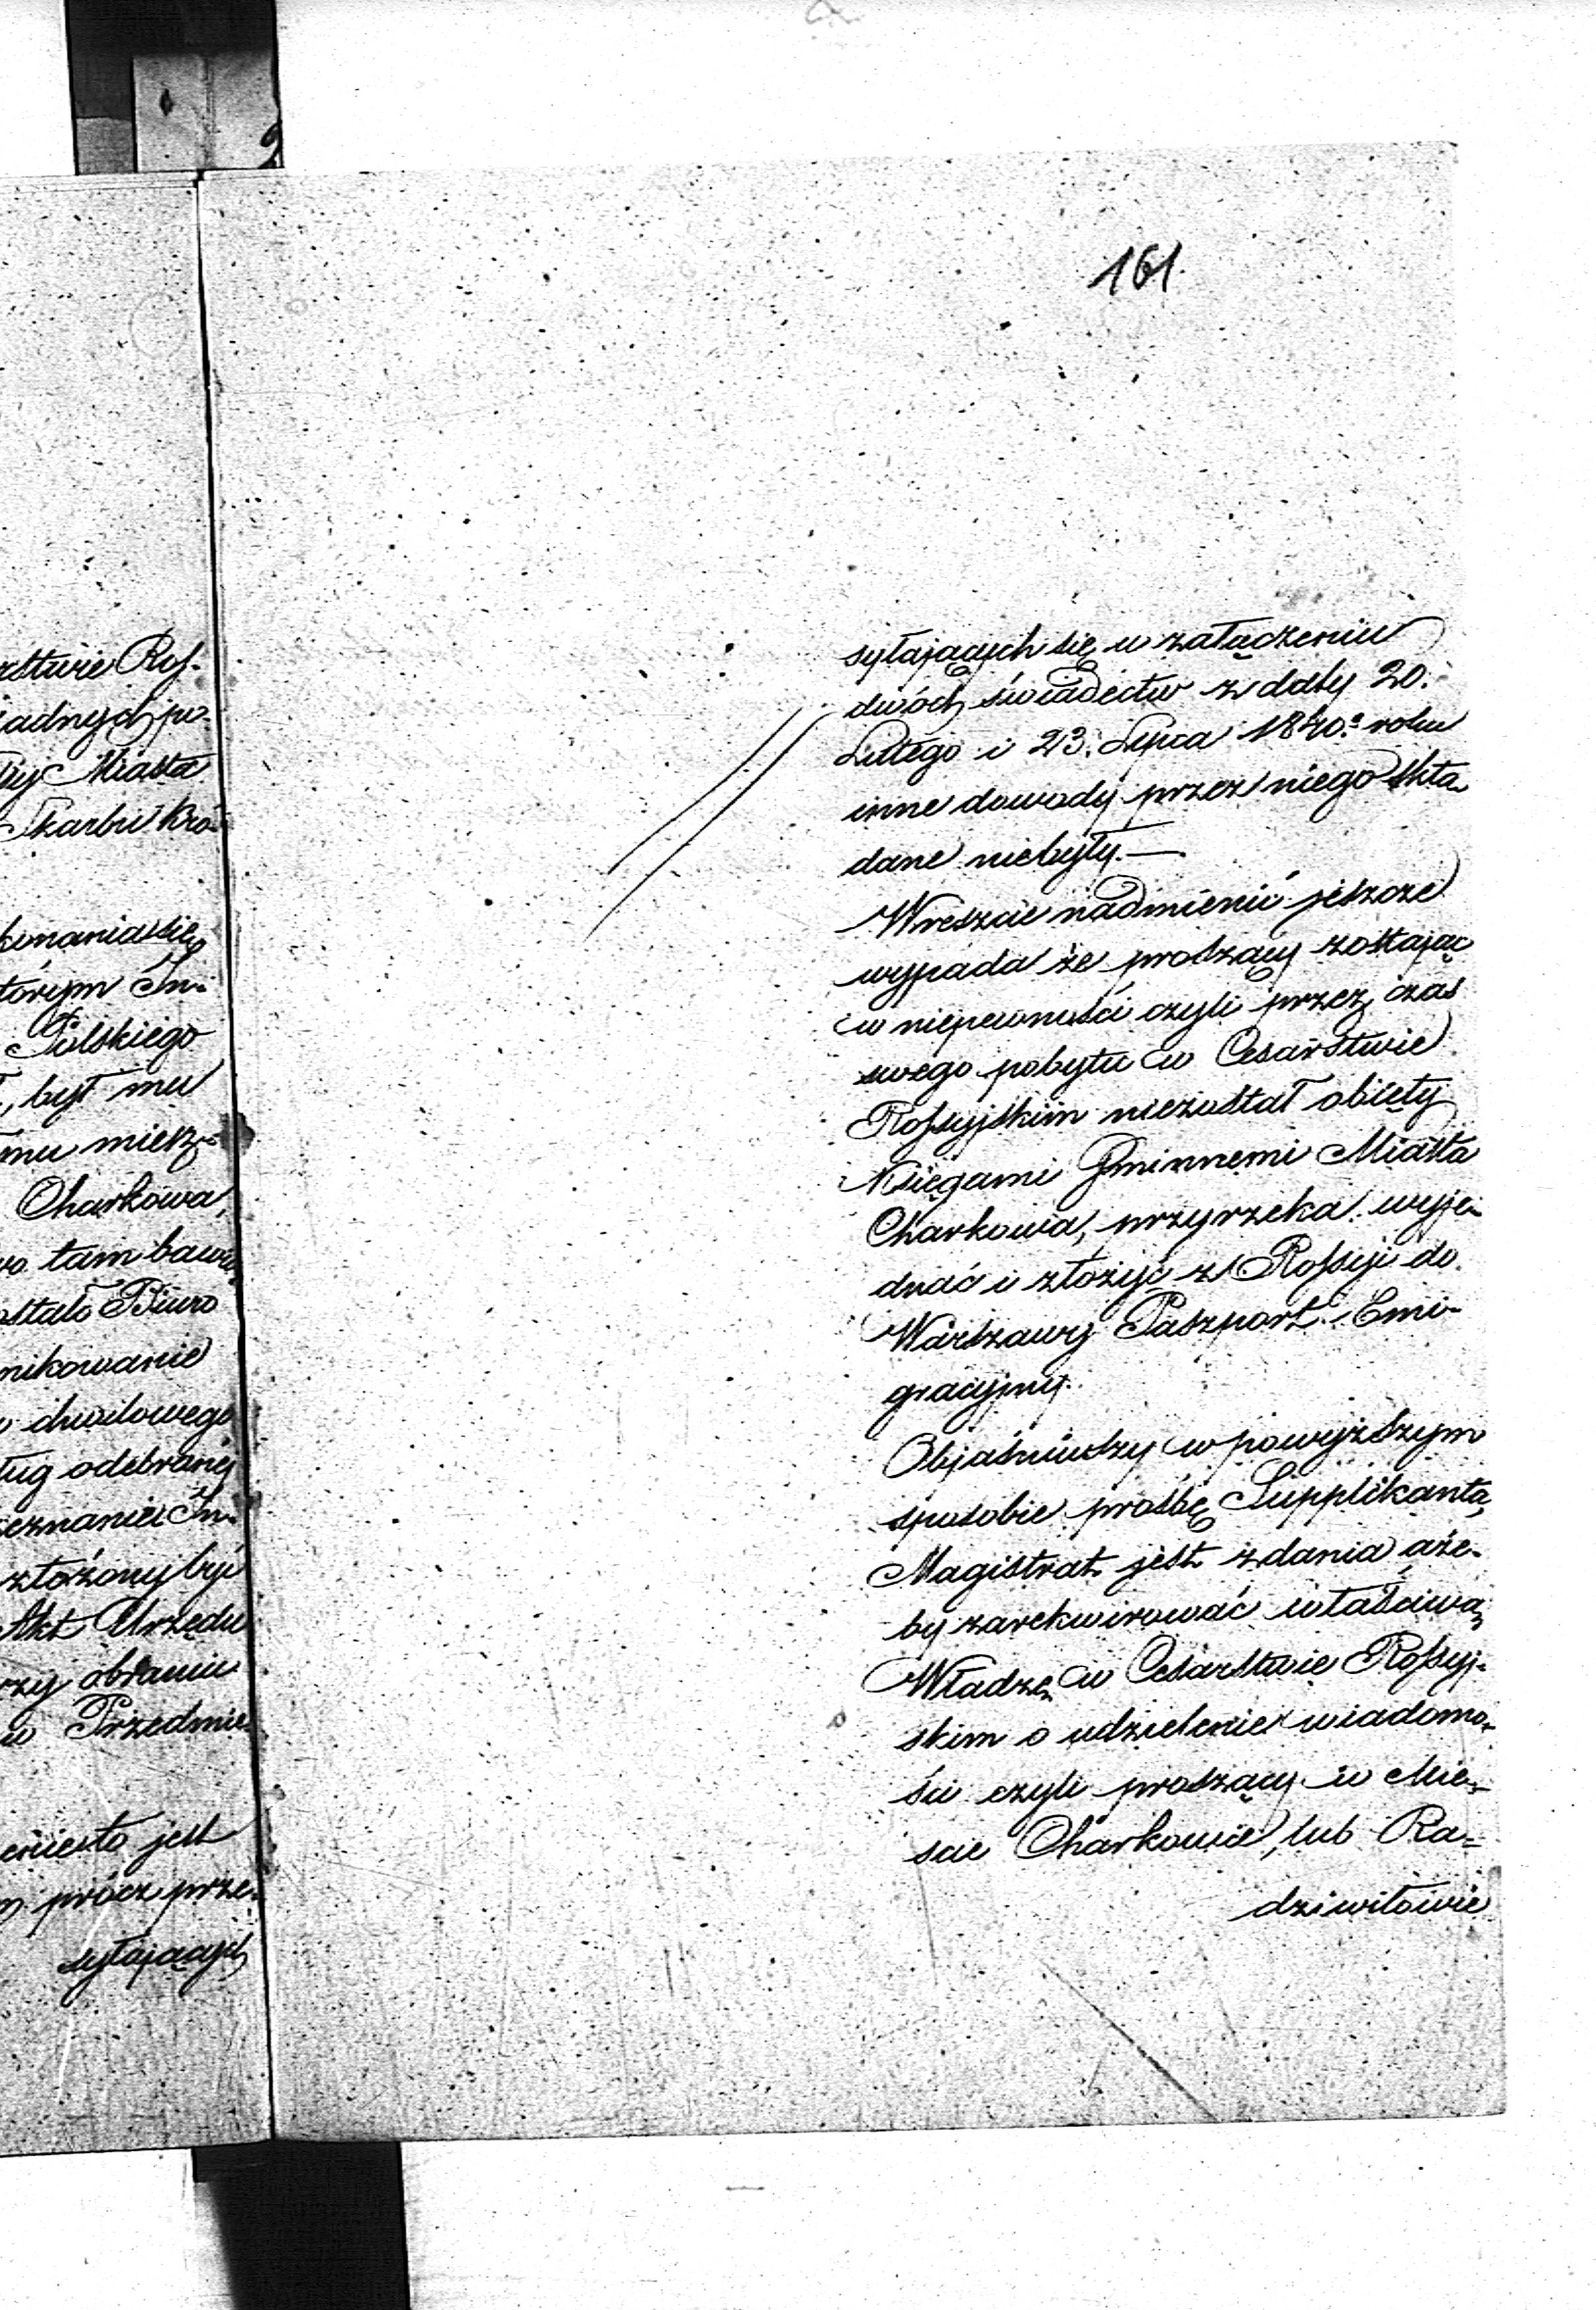 161
rstwie Ross-
adnych po-
Miasta
Skarbu Kró-
konania się
tórym In-
Polskiego
był mu
mu miesz-
Charkowa,
tam bawi
ostało Biuro
nikowanie
chwilowego
ług odebranej
eznanie In-
złożony być
Akt Urzędu
rzy obraniu
w Przedmie-
jest
prócz prze-
syłających
syłających się w załączeniu
dwóch świadectw z daty 20.
Lutego i 23. Lipca 1840.º roku
inne dowody przez niego skła-
dane niebyły.—
Wreszcie nadmienić jeszcze
wypada że proszący zostając
w niepewności czyli przez czas
swego pobytu w Cesarstwie
Rossyjskim niezostał obięty
Księgami Gminnemi Miasta
Charkowa, przyrzeka wyje-
dnać i złożyć z Rossyi do
Warszawy Paszport Emi-
gracyjny.
Objaśniwszy w powyższym
sposobie prośbę Supplikanta,
Magistrat jest zdania, aże-
by zarekwirować właściwą
Władzę w Cesarstwie Rossyj-
skim o udzielenie wiadomo-
ści czyli proszący w Mie-
scie Charkowie, lub Ra-
dziwiłowie